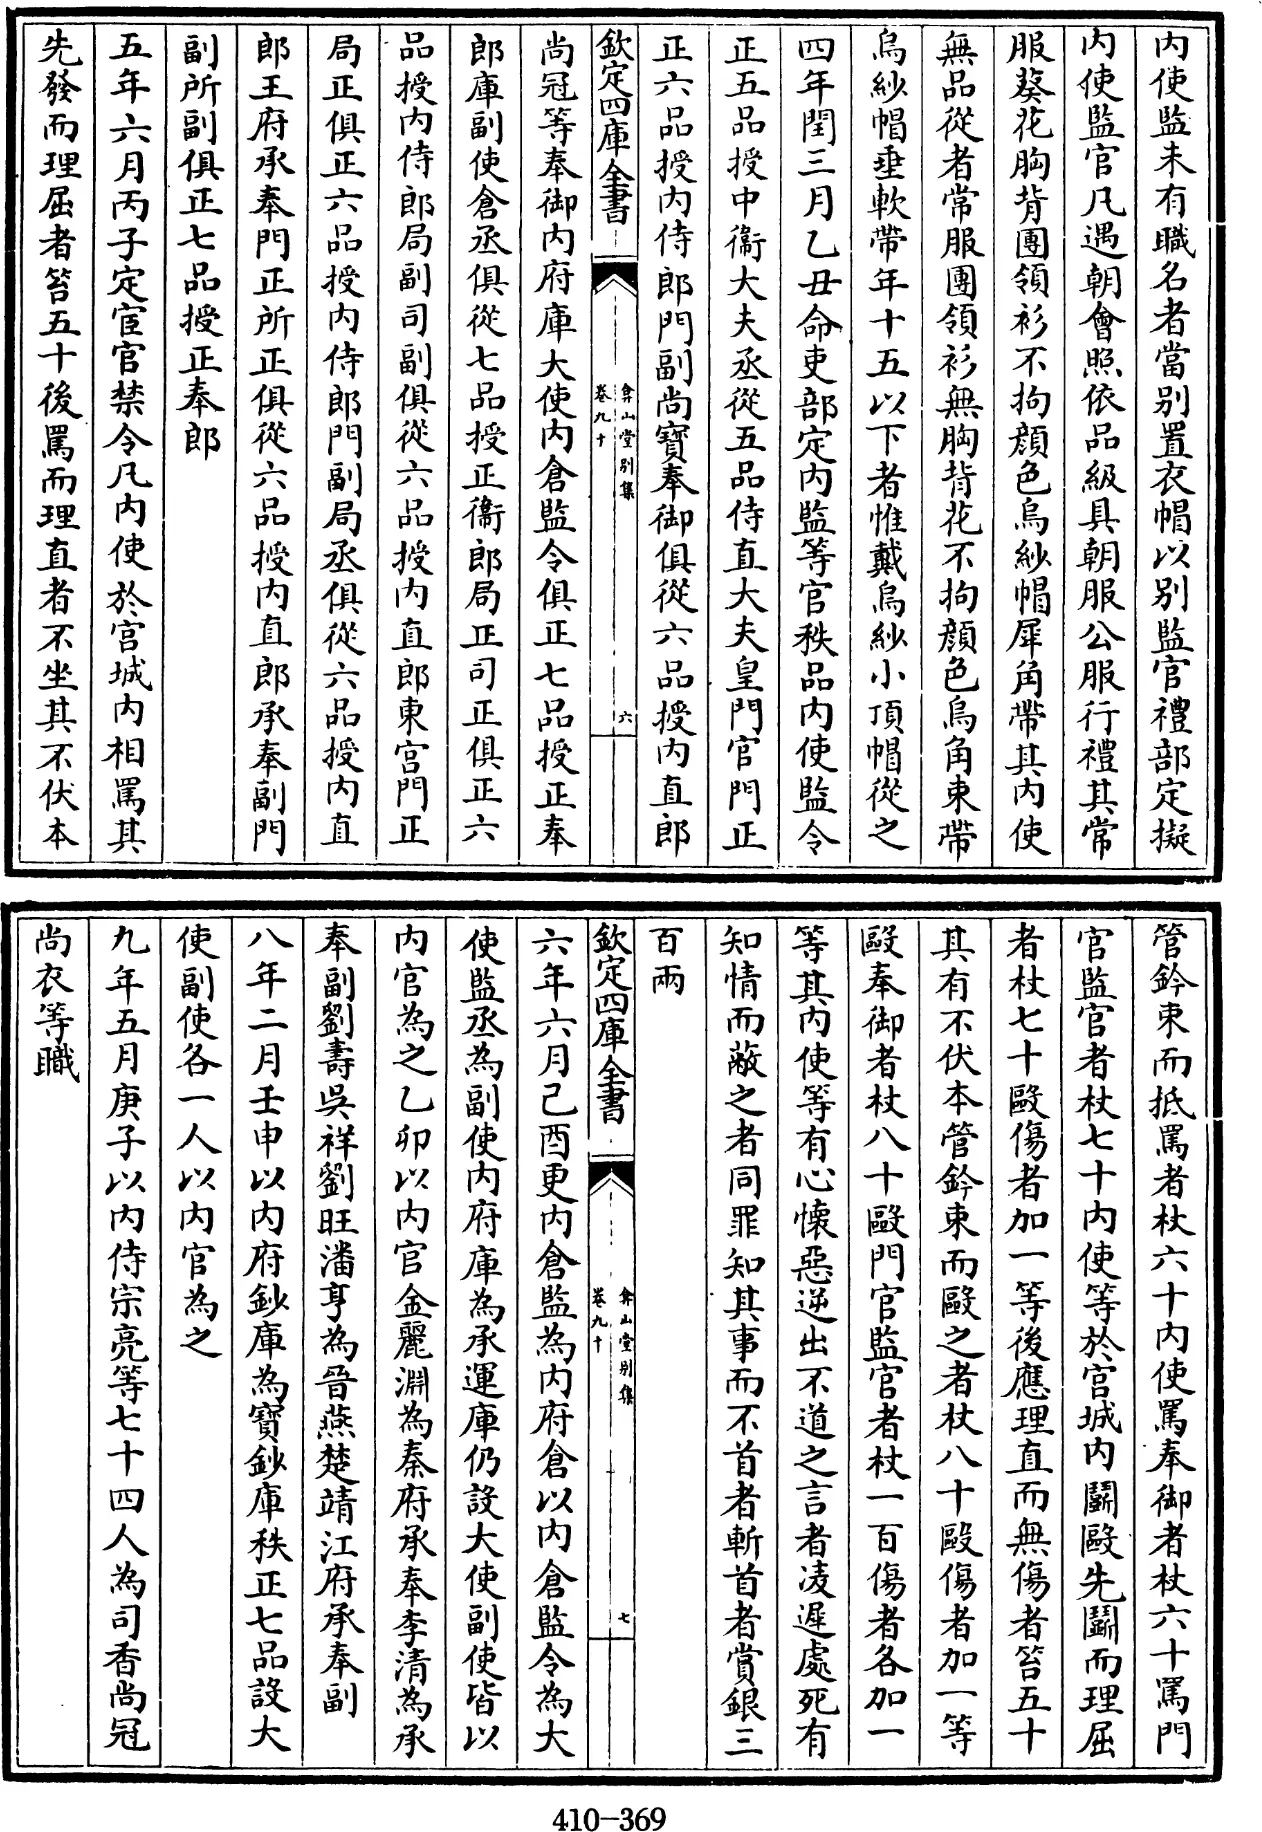 內使監未有職名者當別置衣帽以別監官禮部定擬
內使監官凡遇朝會照依品級具朝服公服行禮其常
服葵花胸背團領衫不拘顏色烏紗帽犀角帶其內使
無品從者常服團領衫無胸背花不拘顏色烏角束帶
烏紗帽垂軟帶年十五以下者惟戴烏紗小頂帽從之
四年閏三月乙丑命吏部定內監等官秩品內使監令
正五品授中衞大夫丞從五品侍直大夫皇門官門正
正六品授內侍郎門副尚寶奉御俱從六品授內直郎
欽定四庫全書
弇山堂別集
卷九十
六
尚冠等奉御內府庫大使內倉監令俱正七品授正奉
郎庫副使倉丞俱從七品授正衞郎局正司正俱正六
品授內侍郎局副司副俱從六品授內直郎東宮門正
局正俱正六品授內侍郎門副局丞俱從六品授內直
郎王府承奉門正所正俱從六品授內直郎承奉副門
副所副俱正七品授正奉郎
五年六月丙子定宦官禁令凡內使於宮城內相罵其
先發而理屈者笞五十後罵而理直者不坐其不伏本
管鈐束而抵罵者杖六十內使罵奉御者杖六十罵門
官監官者杖七十內使等於宮城內鬬毆先鬬而理屈
者杖七十毆傷者加一等後應理直而無傷者笞五十
其有不伏本管鈐束而毆之者杖八十毆傷者加一等
毆奉御者杖八十毆門官監官者杖一百傷者各加一
等其內使等有心懷惡逆出不道之言者凌遲處死有
知情而蔽之者同罪知其事而不首者斬首者賞銀三
百兩
欽定四庫全書
弇山堂別集
卷九十
七
六年六月己酉更內倉監為內府倉以內倉監令為大
使監丞為副使內府庫為承運庫仍設大使副使皆以
內官為之乙卯以內官金麗淵為秦府承奉李清為承
奉副劉壽吳祥劉旺潘亨為晉燕楚靖江府承奉副
八年二月壬申以內府鈔庫為寶鈔庫秩正七品設大
使副使各一人以內官為之
九年五月庚子以內侍宗亮等七十四人為司香尚冠
尚衣等職
410-369